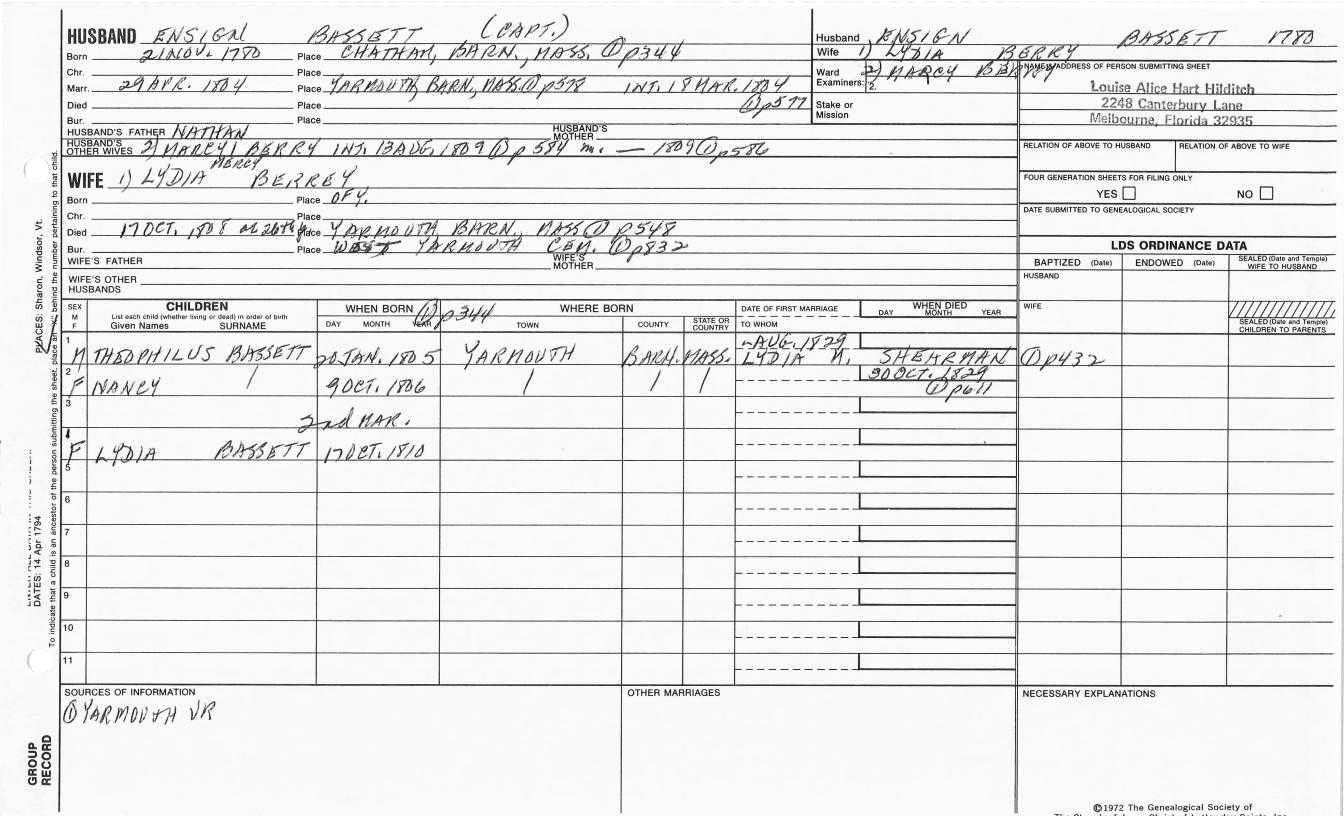 HUSBAND ENSIGN BASSETT (CAPT.)
Born 21 NOV. 1780 Place CHATHAM, BARN., MASS. ① p344
Chr. Place
Marr. 29 APR. 1804 Place YARMOUTH, BARN., MASS. ① p578 INT. 18 MAR. 1804
Died Place ① p577
Bur. Place
HUSBAND'S FATHER NATHAN HUSBAND'S MOTHER
HUSBAND'S OTHER WIVES 2) MARCY BERRY INT. 13 AUG. 1809 ① p 584 m. — 1809 ① p586
MERCY
WIFE 1) LYDIA BERREY
Born Place OF Y.
Chr. Place
Died 17 OCT. 1808 Place YARMOUTH BARN., MASS ① p548
Bur. Place WEST YARMOUTH CEM. ① p832
WIFE'S FATHER WIFE'S MOTHER
WIFE'S OTHER HUSBANDS
Husband ENSIGN BASSETT 1780
Wife 1) LYDIA BERRY
2) MARCY BERRY
Ward Examiners: 1. 2.
Stake or Mission
NAME & ADDRESS OF PERSON SUBMITTING SHEET
Louise Alice Hart Hilditch
2248 Canterbury Lane
Melbourne, Florida 32935
RELATION OF ABOVE TO HUSBAND RELATION OF ABOVE TO WIFE
FOUR GENERATION SHEETS FOR FILING ONLY
YES NO
DATE SUBMITTED TO GENEALOGICAL SOCIETY
LDS ORDINANCE DATA
BAPTIZED (Date) ENDOWED (Date) SEALED (Date and Temple) WIFE TO HUSBAND
HUSBAND
WIFE
SEALED (Date and Temple) CHILDREN TO PARENTS
SEX M F CHILDREN WHEN BORN ① p344 WHERE BORN DATE OF FIRST MARRIAGE WHEN DIED
List each child (whether living or dead) in order of birth
Given Names SURNAME DAY MONTH YEAR TOWN COUNTY STATE OR COUNTRY TO WHOM DAY MONTH YEAR
1 AUG. 1829
M THEOPHILUS BASSETT 20 JAN. 1805 YARMOUTH BARN. MASS. LYDIA N. SHEARMAN ① p432
2 30 OCT. 1829
F NANCY / 9 OCT. 1806 / / / ① p611
3
2nd MAR.
4
F LYDIA BASSETT 17 OCT. 1810
5
6
7
8
9
10
11
SOURCES OF INFORMATION OTHER MARRIAGES NECESSARY EXPLANATIONS
① YARMOUTH VR
©1972 The Genealogical Society of
PLACES: Sharon, Windsor, Vt.
DATES: 14 Apr 1794
To indicate that a child is an ancestor of the person submitting the sheet, place an behind the number pertaining to that child.
GROUP RECORD